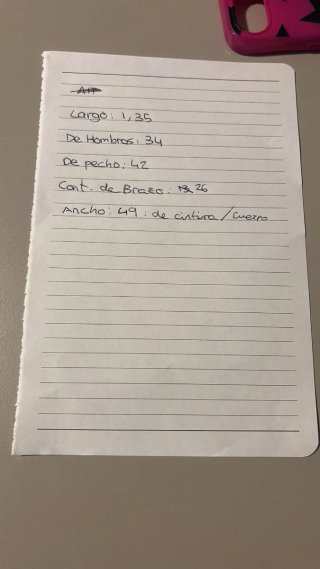 Largo: 1,35
De Hombros: 34
De pecho: 42
Cont. de Brazo: 26
Ancho: 49: de cintura / cuerpo